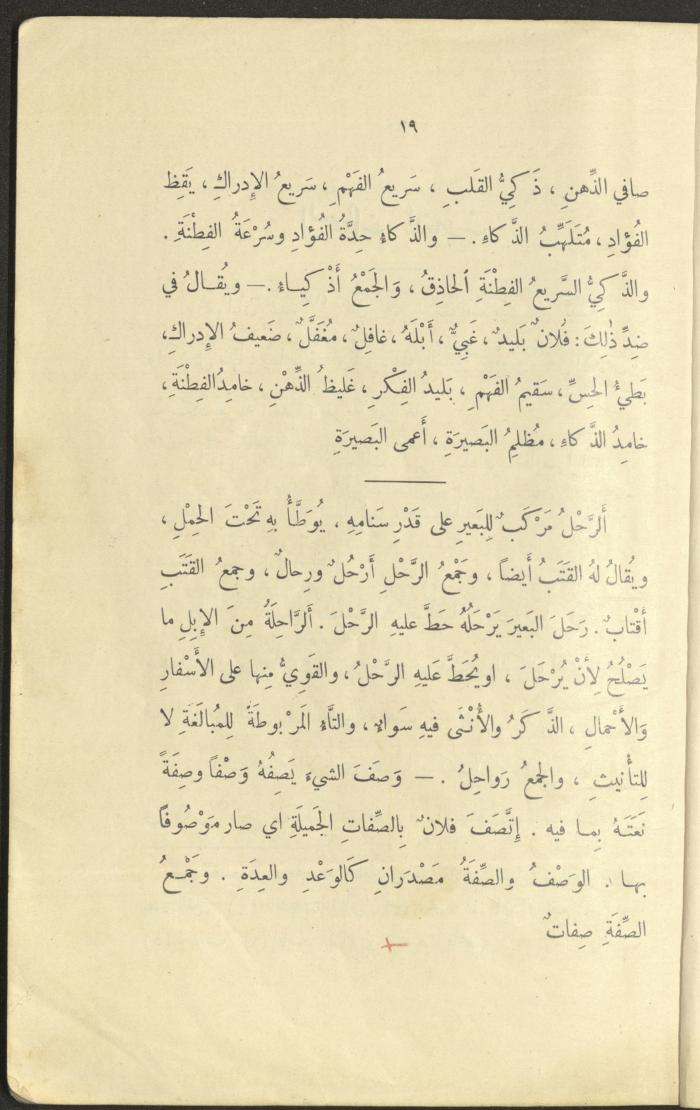 ١٩
صافي الذِّهنِ ، ذَكِيُّ القَلبِ ، سَريعُ الفَهْمِ ، سَريعُ الإِدراكِ ، يَقِظ
الفُؤادِ ، مُتَلَهِّبُ الذَّكاءِ . — والذَّكاءُ حِدَّةُ الفُؤادِ وسُرْعَةُ الفِطْنَةِ .
والذَّكِيُّ السَّريعُ الفِطْنَةِ ٱلحاذِقُ ، وَالجَمْعُ أَذْكِيـاءُ . — ويُقـالُ في
ضِدِّ ذٰلِكَ : فُلانٌ بَليدٌ ، غَبِيٌّ ، أَبْلَهُ ، غافِلٌ ، مُغَفَّلٌ ، ضَعيفُ الإِدراكِ ،
بَطيءُ الحِسِّ ، سَقيمُ الفَهْمِ ، بَليدُ الفِكْرِ ، غَليظُ الذِّهْنِ ، خامِدُ الفِطْنَةِ ،
خامِدُ الذَّكاءِ ، مُظلِمُ البَصيرَةِ ، أَعمى البَصيرَةِ
أَلرَّحْلُ مَرْكَبٌ لِلبَعيرِ على قَدْرِ سَنامِهِ ، يُوَطَّأُ بِهِ تَحْتَ الحِمْلِ ،
ويُقالُ لهُ القَتَبُ أَيضاً ، وجَمْعُ الرَّحْلِ أَرْحُلٌ ورِحالٌ ، وجمعُ القَتَبِ
أَقْتابٌ . رَحَلَ البَعيرَ يَرْحَلُهُ حَطَّ عليهِ الرَّحْلَ . أَلرَّاحِلَةُ مِنَ الإِبِلِ ما
يَصْلُحُ لِأَنْ يُرْحَلَ ، او يُحَطَّ عَليهِ الرَّحْلُ ، والقَوِيُّ مِنها على الأَسْفارِ
وَالأَحْمالِ ، الذَّكَرُ والأُنْثَى فيهِ سَواءٌ ، والتَّاءُ المَرْبوطَةُ لِلمُبالَغَةِ لا
لِلتأْنيثِ ، والجمعُ رَواحِلُ . — وَصَفَ الشيءَ يَصِفُهُ وَصْفاً وصِفَةً
نَعَتَـهُ بِمـا فيه . إِتَّصَفَ فلانٌ بِالصِّفاتِ الجَميلَةِ اي صار مَوْصُوفاً
بهـا . الوَصْفُ والصِّفَةُ مَصْدَرانِ كَالوَعْدِ والعِدَةِ . وجَمْـعُ
الصِّفَةِ صِفاتٌ